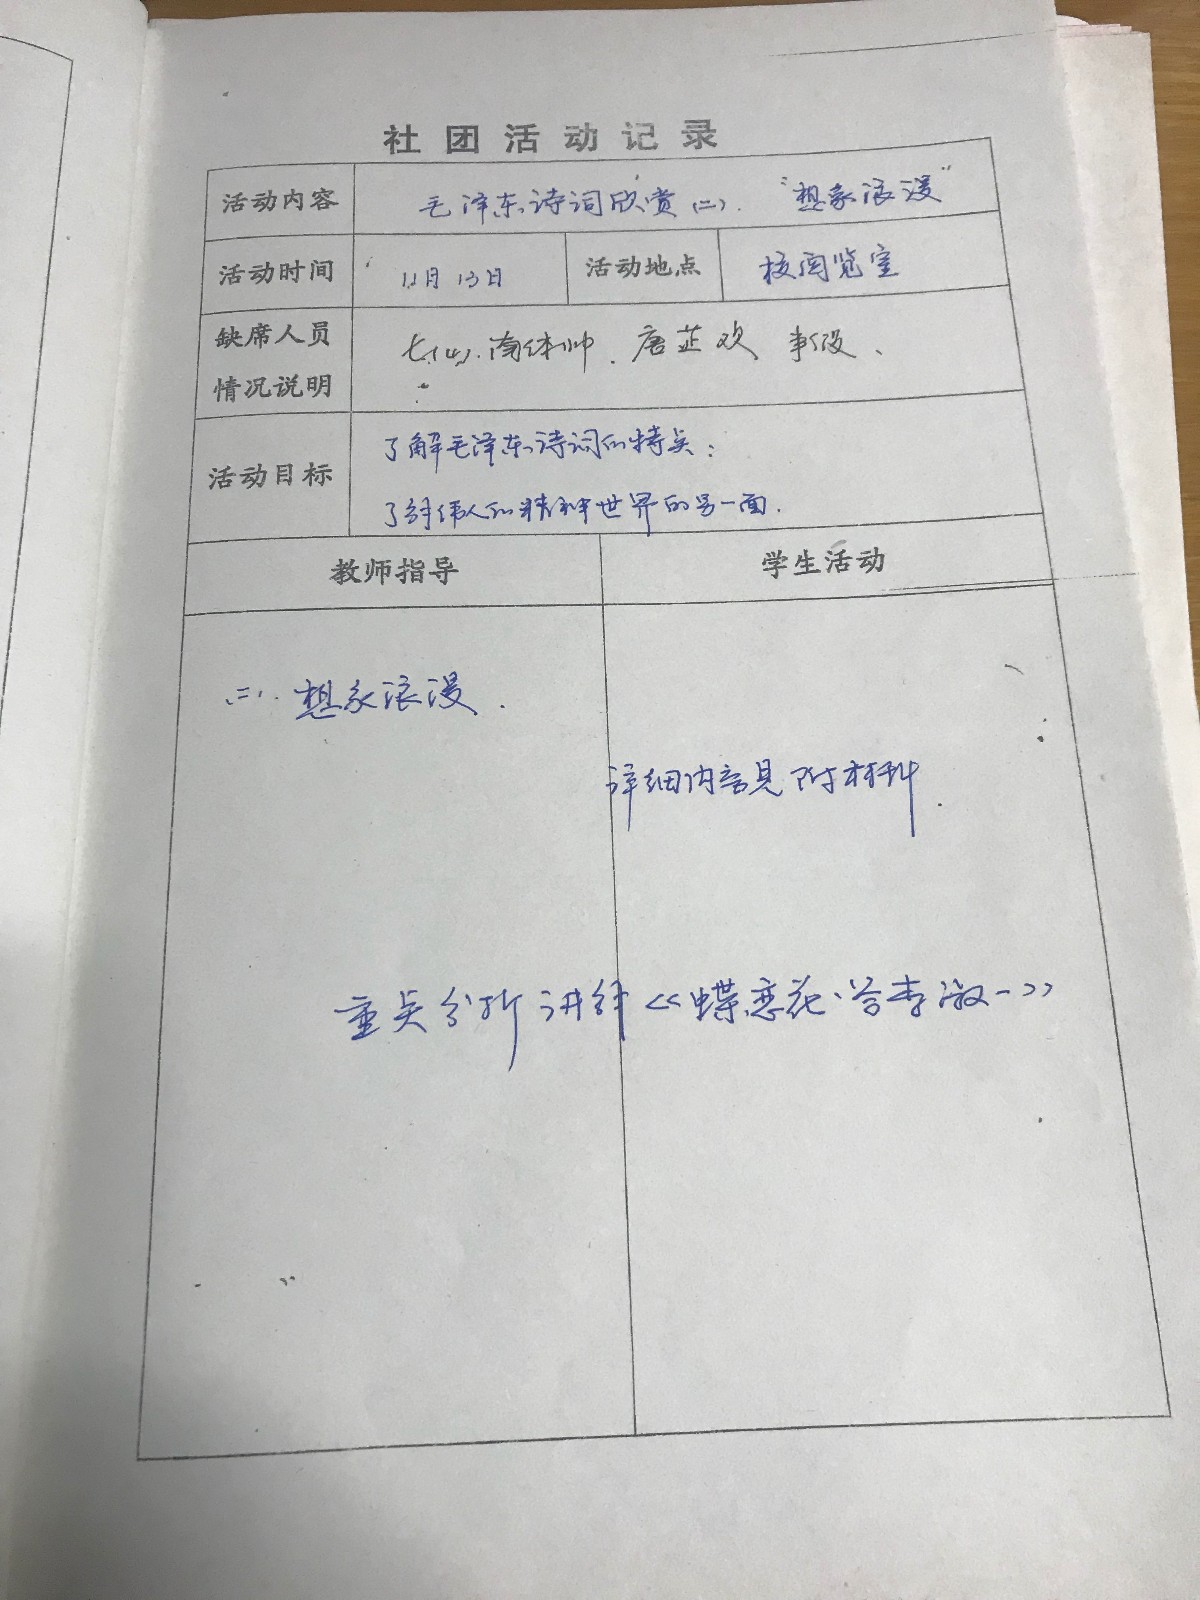 社团活动记录
活动内容 毛泽东诗词欣赏(二). "想象浪漫"
活动时间 11月13日 活动地点 校阅览室
缺席人员 七(4). 唐芷欢 事假、
情况说明
了解毛泽东诗词的特点;
活动目标
了解伟人的精神世界的另一面.
教师指导 学生活动
(二). 想象浪漫.
详细内容见附材料.
重点分析讲解《蝶恋花·答李淑一》